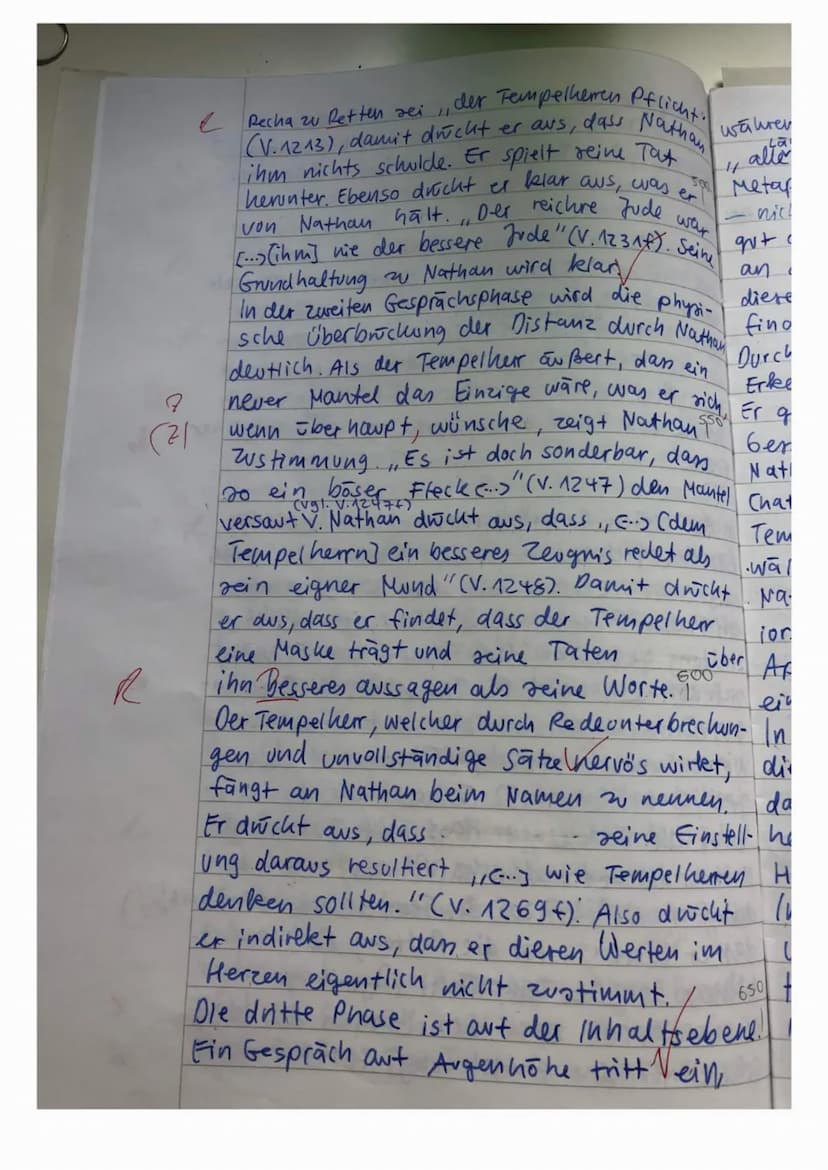 Recha zu Retten sei „der Tempelherren Pflicht"
(V. 1213), damit drückt er aus, dass Nathan
ihm nichts schulde. Er spielt seine Tat
herunter. Ebenso drückt er klar aus, was er
von Nathan hält. „Der reichre Jude war
[...] [ihm] nie der bessere Jude" (V. 1231f). Seine
Grundhaltung zu Nathan wird klar.
In der zweiten Gesprächsphase wird die physi-
sche Überbrückung der Distanz durch Nathan
deutlich. Als der Tempelherr äußert, dass ein
neuer Mantel das Einzige wäre, was er sich,
wenn überhaupt, wünsche, zeigt Nathan 550
Zustimmung. „Es ist doch sonderbar, dass
so ein böser Fleck [...]" (V. 1247) den Mantel
versaut (vgl. V. 1247f). Nathan drückt aus, dass „[...] [dem
Tempelherrn] ein besseres Zeugnis redet als
sein eigner Mund" (V. 1248). Damit drückt
er aus, dass er findet, dass der Tempelherr
eine Maske trägt und seine Taten über
ihn Besseres aussagen als seine Worte. 600
Der Tempelherr, welcher durch Redeunterbrechun-
gen und unvollständige Sätze nervös wirkt,
fängt an Nathan beim Namen zu nennen.
Er drückt aus, dass seine Einstell-
ung daraus resultiert „[...] wie Tempelherren
denken sollten." (V. 1269f). Also drückt
er indirekt aus, dass er diesen Werten im
Herzen eigentlich nicht zustimmt. 650
Die dritte Phase ist auf der Inhaltsebene.
Ein Gespräch auf Augenhöhe tritt ein,
R
? (Z)
währen
„alle
Metap
– nic
gut
an
diese
find
Durch
Erke
Er g
Nath
Chat
Tem
wäh
Na
In